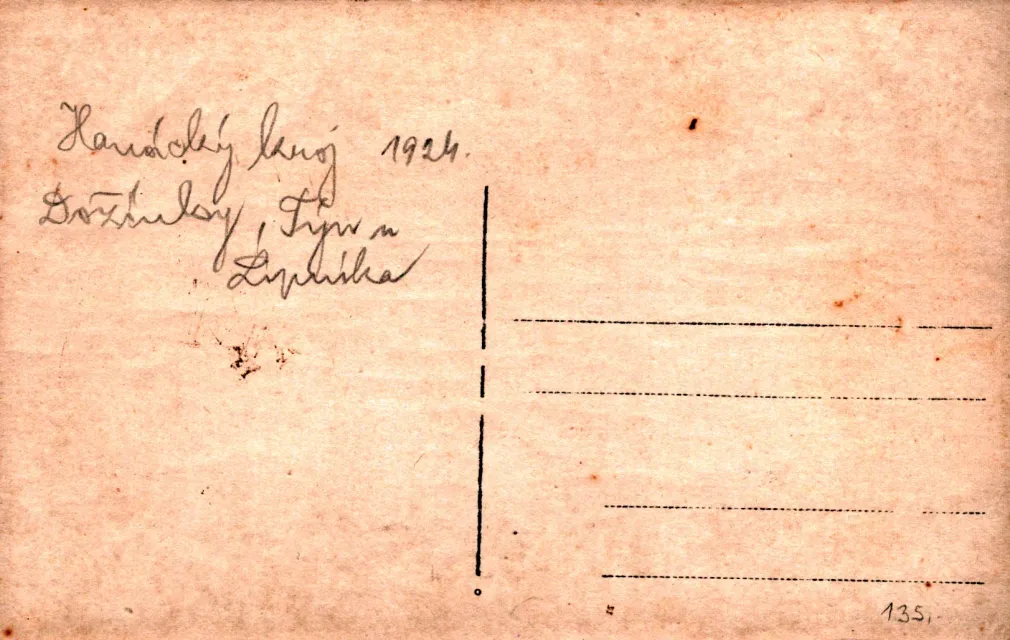 Hanácký kroj 1924.
Dožínky, Týn u
Lipníka
135,-